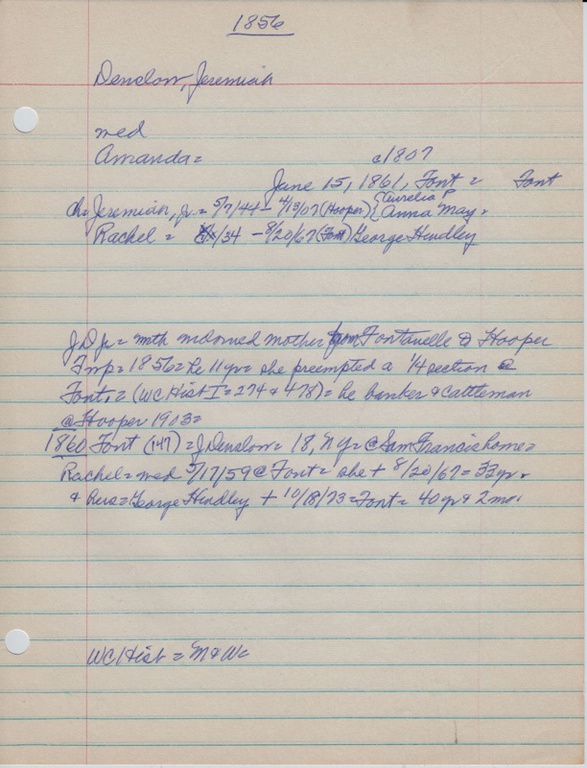 1856
Denslow, Jeremiah
wed
Amanda = c1807
June 15, 1861, Font = Font
ch = Jeremiah, Jr. = 5/7/44 - 4/13/07 (Hooper) { Aurelia
Anna May =
Rachel = /34 - 8/20/67 (Font) George Hindley
JD Jr = with widowed mother from Fontanelle & Hooper
Twp = 1856 = he 11 yr = she preempted a 1/4 section @
Font. = (WC Hist I = 274 & 478) = he banker & cattleman
@ Hooper 1903 =
1860 Font (147) = J Denslow = 18, NY = @ Sam Francis home =
Rachel = wed 5/17/59 @ Font = she + 8/20/67 = 33 yr.
& hus = George Hindley + 10/18/73 = Font = 40 yr & 2 mo.
WC Hist = M & W =